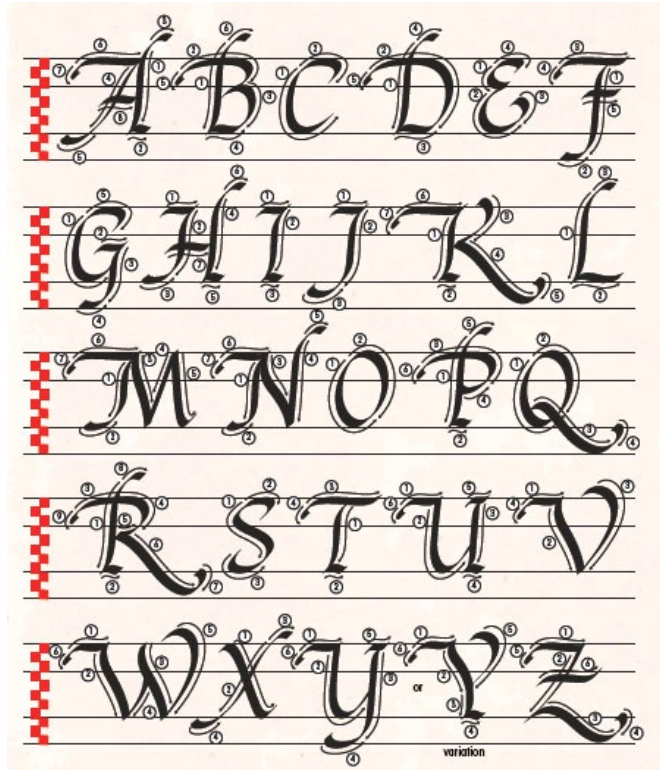 A B C D E F
G H I J K L
M N O P Q
R S T U V
W X Y or Y Z
variation